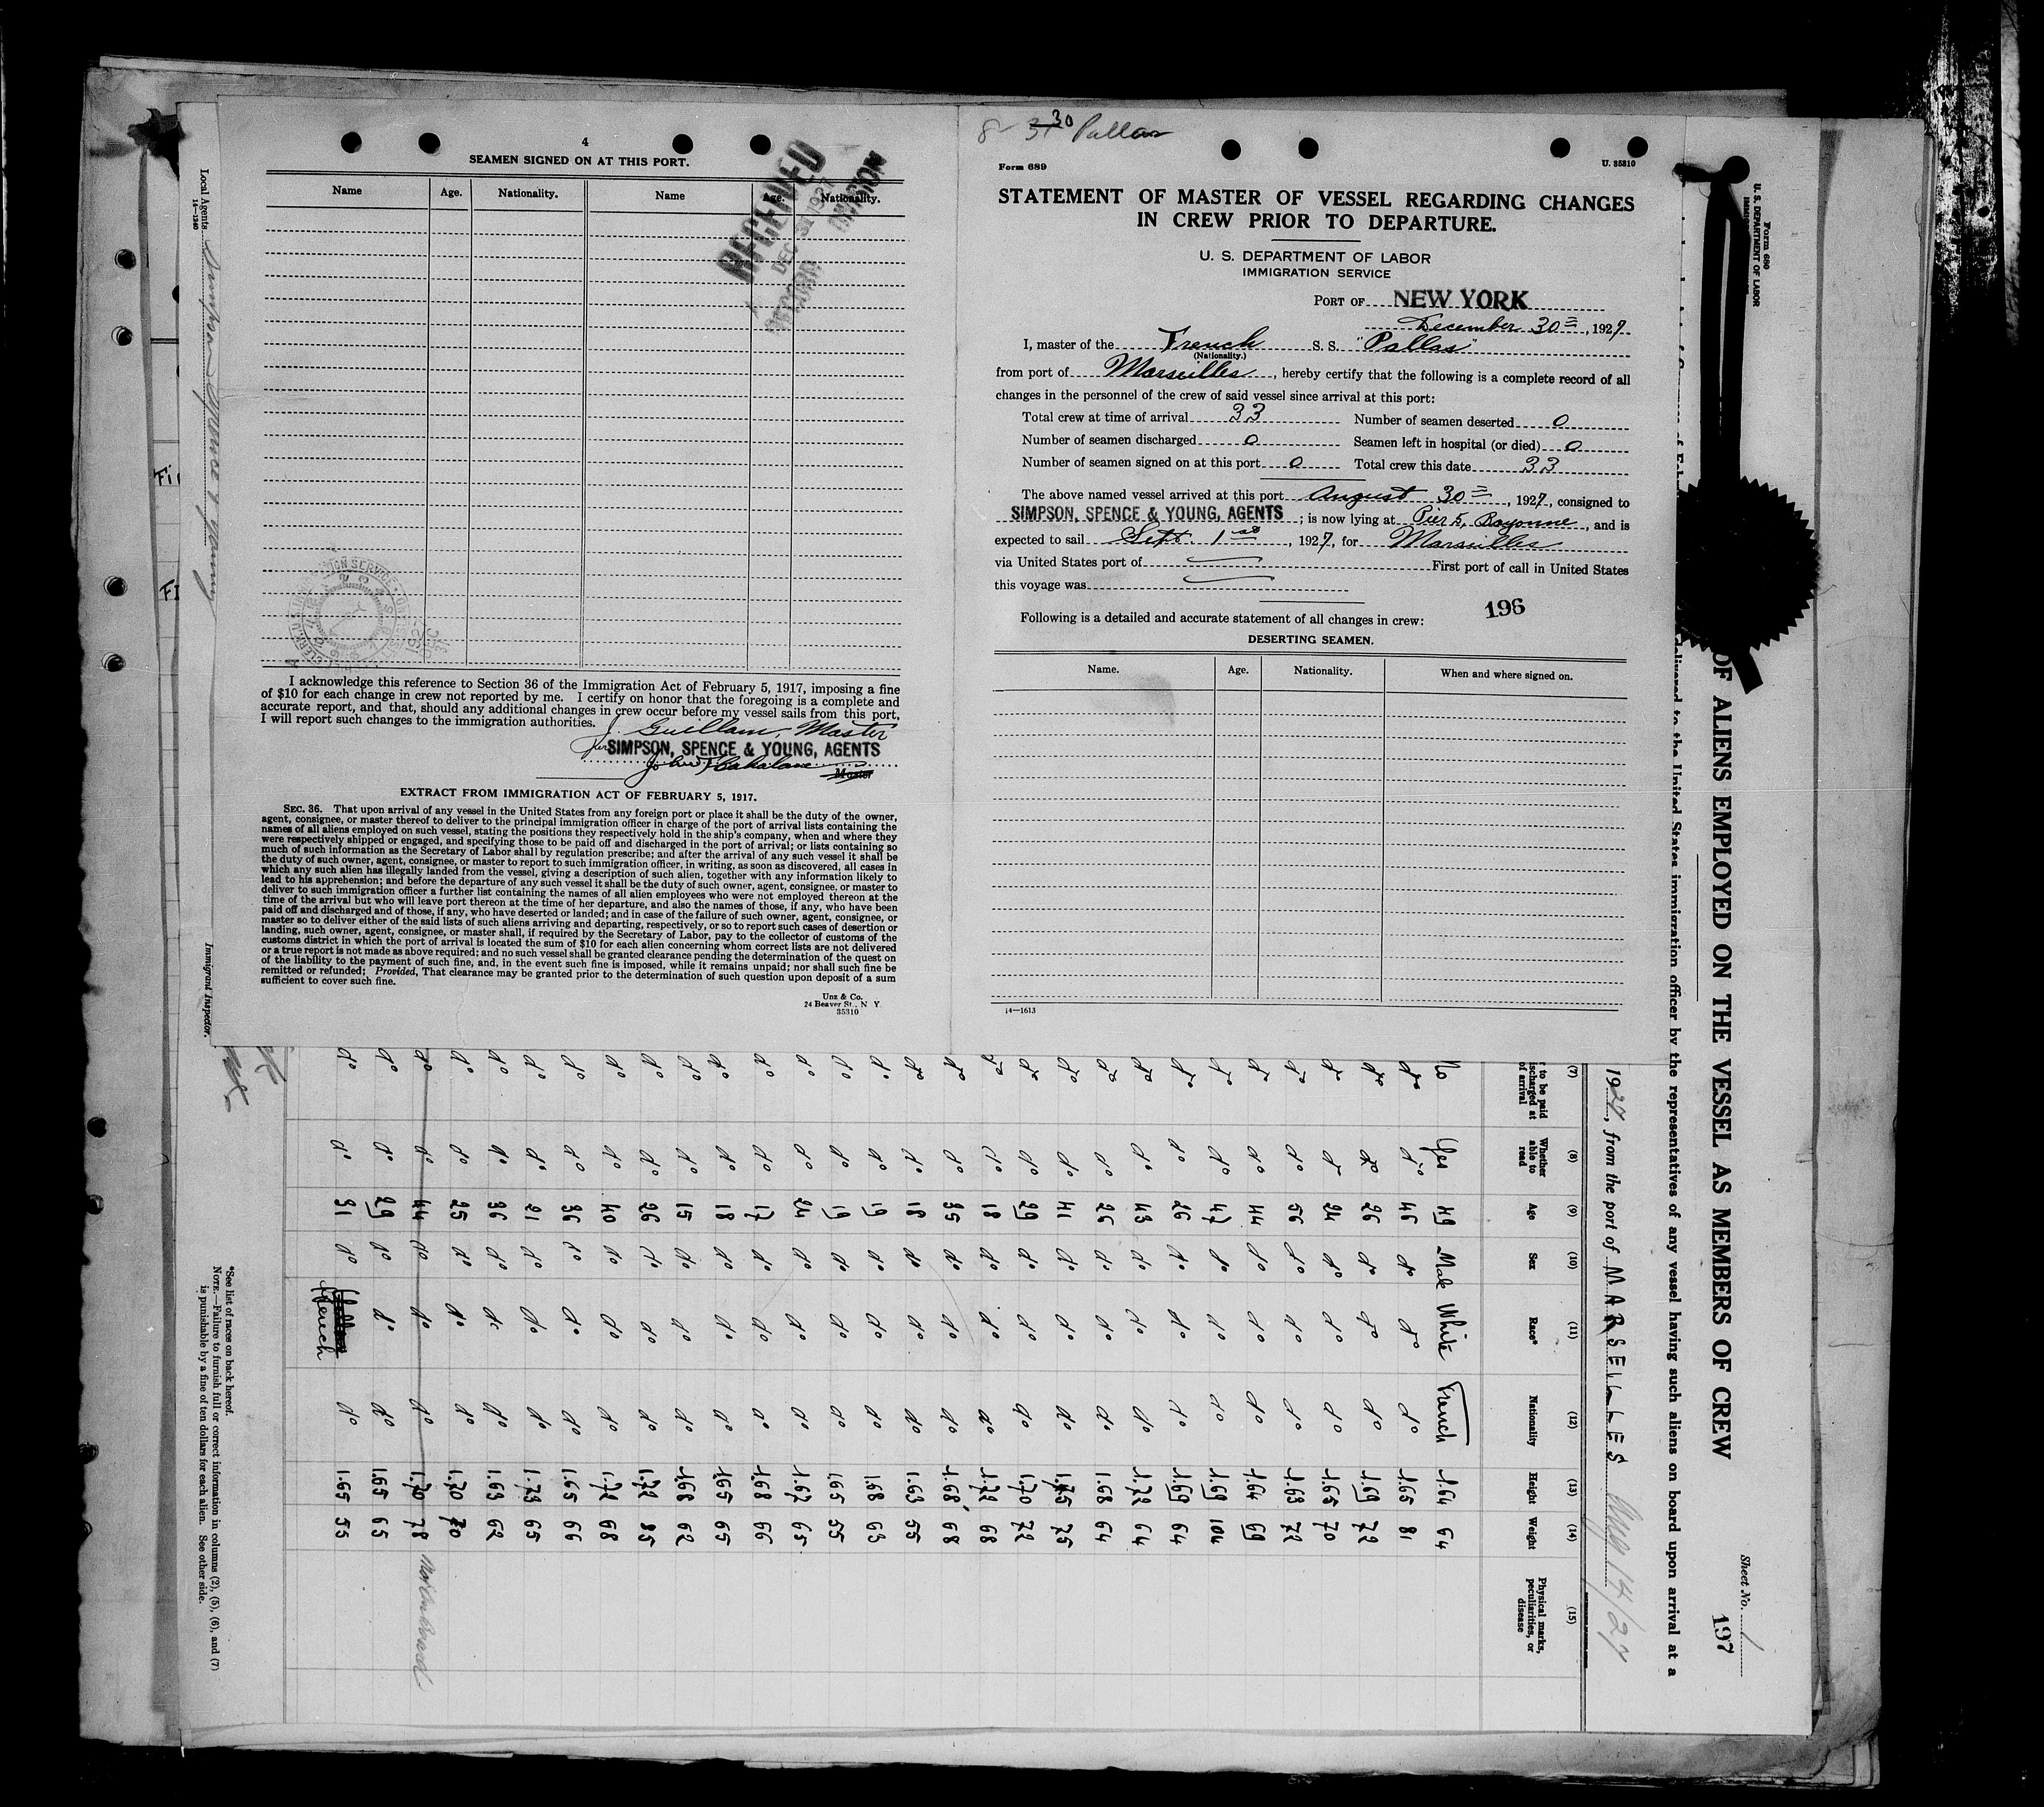 4
SEAMEN SIGNED ON AT THIS PORT.
Name Age. Nationality. Name Age. Nationality.
RECEIVED
DEC 31 1927
RECORD DIVISION
I acknowledge this reference to Section 36 of the Immigration Act of February 5, 1917, imposing a fine
of $10 for each change in crew not reported by me. I certify on honor that the foregoing is a complete and
accurate report, and that, should any additional changes in crew occur before my vessel sails from this port,
I will report such changes to the immigration authorities.
J. Guillam, Master
per SIMPSON, SPENCE & YOUNG, AGENTS
Master
EXTRACT FROM IMMIGRATION ACT OF FEBRUARY 5, 1917.
SEC. 36. That upon arrival of any vessel in the United States from any foreign port or place it shall be the duty of the owner,
agent, consignee, or master thereof to deliver to the principal immigration officer in charge of the port of arrival lists containing the
names of all aliens employed on such vessel, stating the positions they respectively hold in the ship's company, when and where they
were respectively shipped or engaged, and specifying those to be paid off and discharged in the port of arrival; or lists containing so
much of such information as the Secretary of Labor shall by regulation prescribe; and after the arrival of any such vessel it shall be
the duty of such owner, agent, consignee, or master to report to such immigration officer, in writing, as soon as discovered, all cases in
which any such alien has illegally landed from the vessel, giving a description of such alien, together with any information likely to
lead to his apprehension; and before the departure of any such vessel it shall be the duty of such owner, agent, consignee, or master to
deliver to such immigration officer a further list containing the names of all alien employees who were not employed thereon at the
time of the arrival but who will leave port thereon at the time of her departure, and also the names of those, if any, who have been
paid off and discharged and of those, if any, who have deserted or landed; and in case of the failure of such owner, agent, consignee, or
master so to deliver either of the said lists of such aliens arriving and departing, respectively, or so to report such cases of desertion or
landing, such owner, agent, consignee, or master shall, if required by the Secretary of Labor, pay to the collector of customs of the
customs district in which the port of arrival is located the sum of $10 for each alien concerning whom correct lists are not delivered
or a true report is not made as above required; and no such vessel shall be granted clearance pending the determination of the quest on
of the liability to the payment of such fine, and, in the event such fine is imposed, while it remains unpaid; nor shall such fine be
remitted or refunded; Provided, That clearance may be granted prior to the determination of such question upon deposit of a sum
sufficient to cover such fine.
Unz & Co.
24 Beaver St., N Y
35310
8- 31 30 Pallas
Form 689
U. 35310
STATEMENT OF MASTER OF VESSEL REGARDING CHANGES
IN CREW PRIOR TO DEPARTURE.
U. S. DEPARTMENT OF LABOR
IMMIGRATION SERVICE
PORT OF NEW YORK
December 30th, 1927.
I, master of the French S. S. "Pallas"
(Nationality.)
from port of Marseilles, hereby certify that the following is a complete record of all
changes in the personnel of the crew of said vessel since arrival at this port:
Total crew at time of arrival 33 Number of seamen deserted 0
Number of seamen discharged 0 Seamen left in hospital (or died) 0
Number of seamen signed on at this port 0 Total crew this date 33
The above named vessel arrived at this port August 30th, 1927, consigned to
SIMPSON, SPENCE & YOUNG, AGENTS; is now lying at Pier 5, Bayonne, and is
expected to sail Sept. 1st, 1927, for Marseilles
via United States port of First port of call in United States
this voyage was
196
Following is a detailed and accurate statement of all changes in crew:
DESERTING SEAMEN.
Name. Age. Nationality. When and where signed on.
14—1613
Form 680
U. S. DEPARTMENT OF LABOR
Sheet No. 1
197
OF ALIENS EMPLOYED ON THE VESSEL AS MEMBERS OF CREW
delivered to the United States immigration officer by the representatives of any vessel having such aliens on board upon arrival at a
1927, from the port of MARSEILLES Aug 14/27
(7) (8) (9) (10) (11) (12) (13) (14) (15)
to be paid discharged at of arrival Whether able to read Age Sex Race* Nationality Height Weight Physical marks, peculiarities, or disease
No Yes 49 Male White French 1.64 64
do do 46 do do do 1.65 81
do do 26 do do do 1.69 72
do do 24 do do do 1.65 70
do do 56 do do do 1.63 72
do do 44 do do do 1.64 69
do do 47 do do do 1.69 104
do do 26 do do do 1.69 64
do do 43 do do do 1.72 64
do do 26 do do do 1.68 64
do do 41 do do do 1.75 75
do do 29 do do do 1.70 72
do do 18 do do do 1.72 68
do do 35 do do do 1.68 68
do do 18 do do do 1.63 55
do do 19 do do do 1.68 63
do do 19 do do do 1.65 55
do do 24 do do do 1.67 65
do do 17 do do do 1.68 66
do do 18 do do do 1.65 65
do do 15 do do do 1.68 62
do do 26 do do do 1.72 85
do do 40 do do do 1.72 68
do do 36 do do do 1.65 66
do do 21 do do do 1.73 65
do do 36 do do do 1.63 62
do do 25 do do do 1.70 70
do do 44 do do do 1.70 78 Not on board
do do 29 do do do 1.65 65
do do 31 do French do 1.65 55
*See list of races on back hereof.
NOTE.—Failure to furnish full or correct information in columns (2), (5), (6), and (7)
is punishable by a fine of ten dollars for each alien. See other side.
Local Agents Simpson Spence & Young
14—1240
Immigrant Inspector.